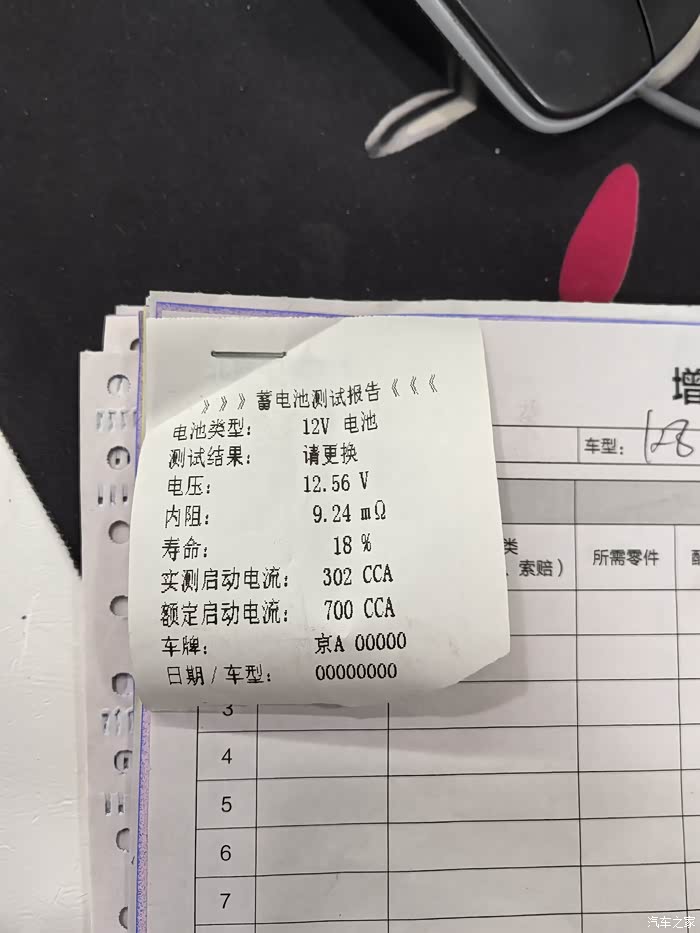 》》》蓄电池测试报告《《《
电池类型： 12V 电池
测试结果： 请更换
电压： 12.56 V
内阻： 9.24 mΩ
寿命： 18 %
实测启动电流： 302 CCA
额定启动电流： 700 CCA
车牌： 京A 00000
日期／车型： 00000000
增
车型：
类
索赔）
所需零件
3
4
5
6
7
汽车之家